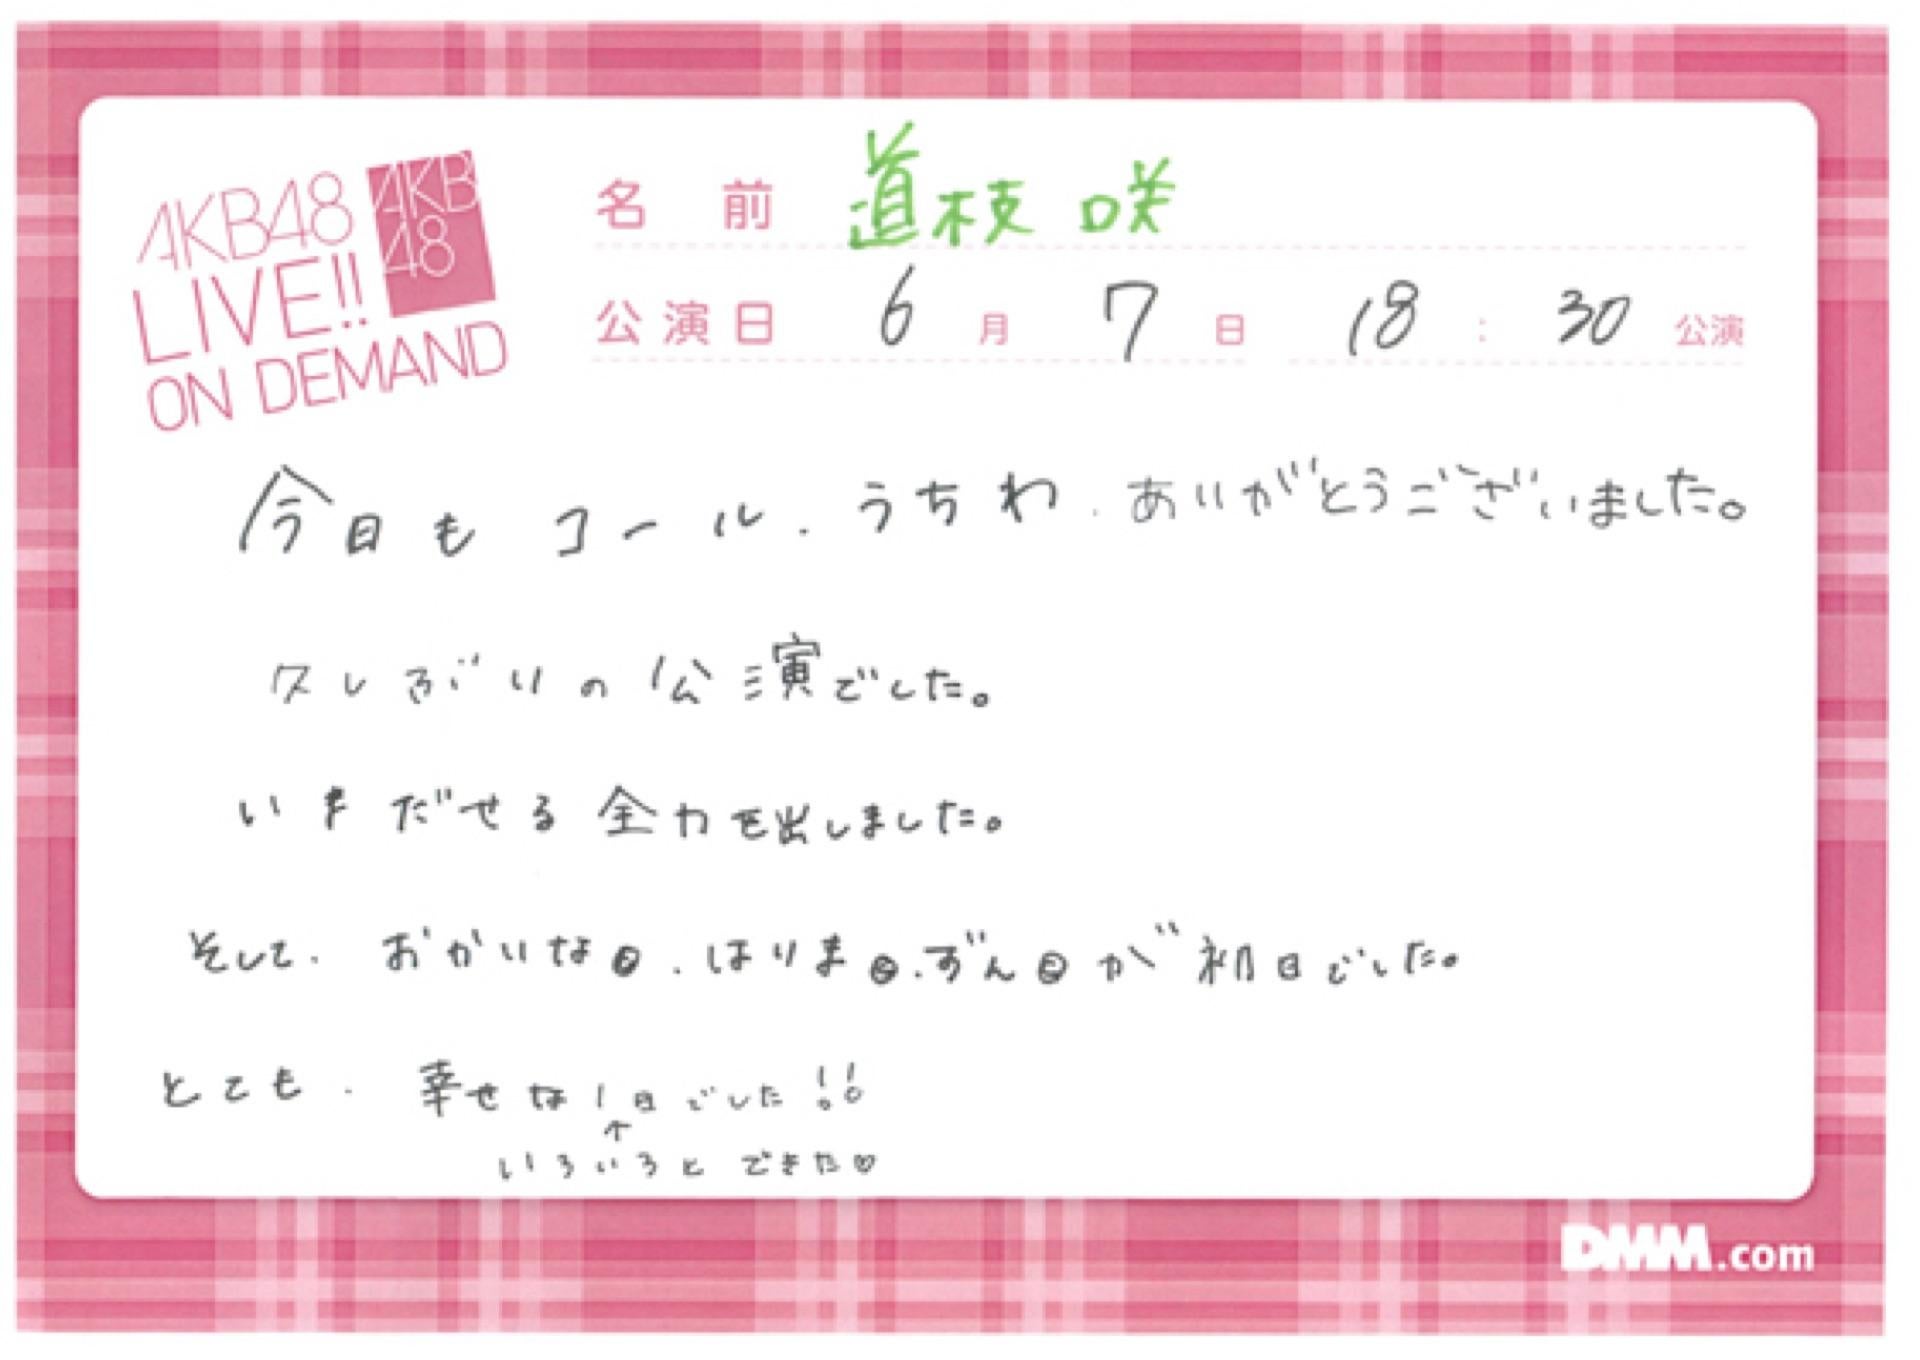 AKB48
LIVE!!
ON DEMAND
AKB
48
名前 道枝 咲
公演日 6月7日 18:30 公演
今日も コール、うちわ、ありがとうございました。
久しぶりの公演でした。
いまだせる全力を出しました。
そして、おかいな日、はりま日、ずん日が初日でした。
とても、幸せな1日でした!!
↑
いろいろとできた♡
DMM.com